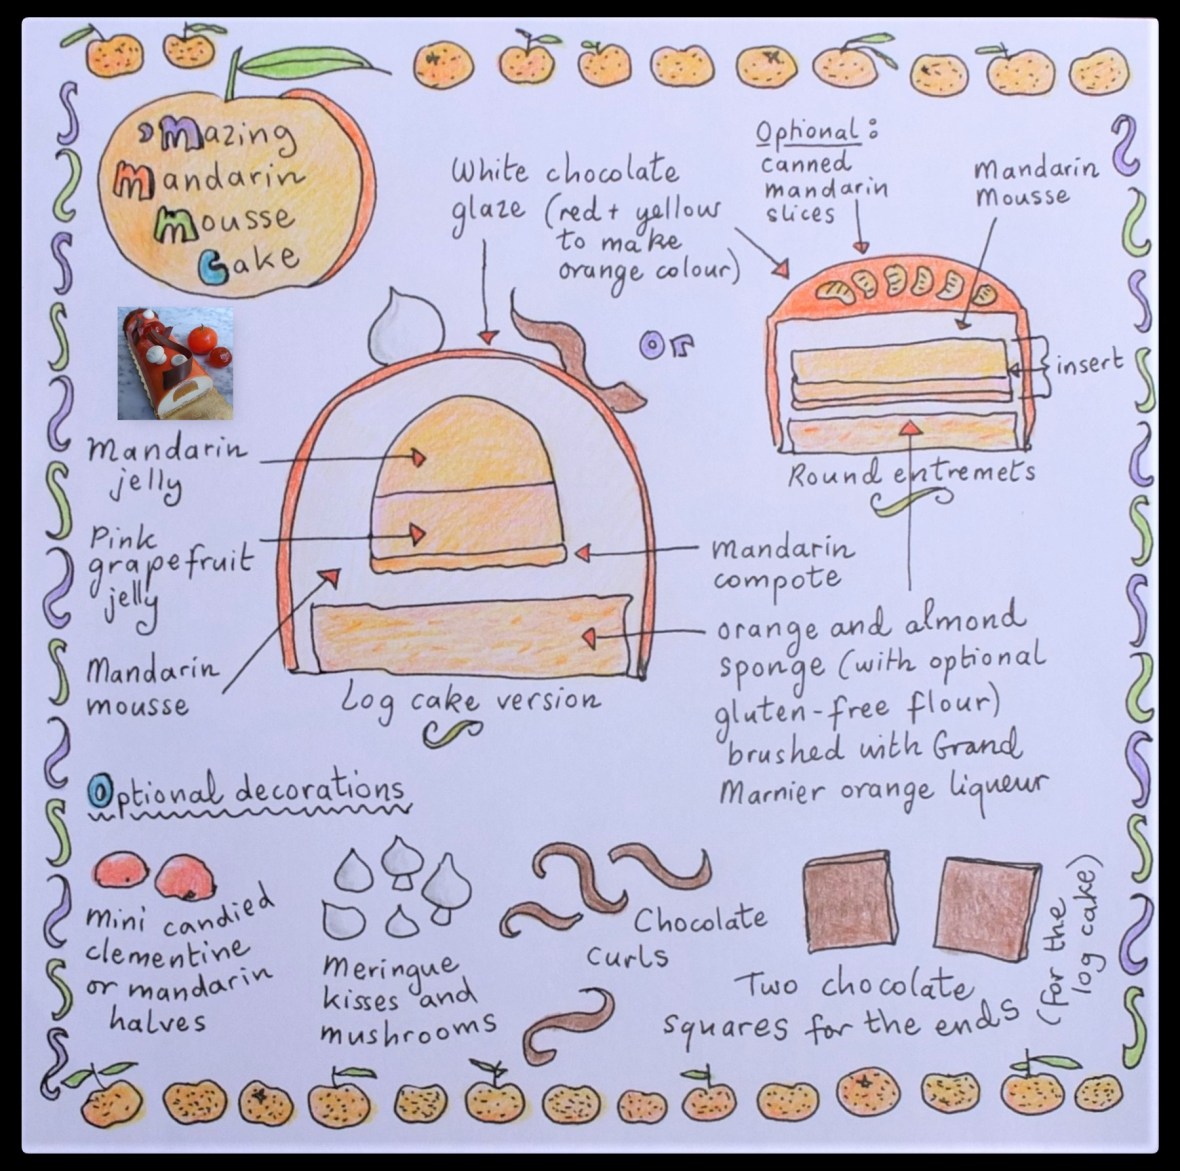 'Mazing
Mandarin
Mousse
Cake
White chocolate
glaze (red + yellow
to make
orange colour)
Optional:
canned
mandarin
slices
Mandarin
Mousse
or
insert
Round entremets
Mandarin
jelly
Pink
grapefruit
jelly
Mandarin
mousse
Log cake version
mandarin
compote
orange and almond
sponge (with optional
gluten-free flour)
brushed with Grand
Marnier orange liqueur
Optional decorations
Mini candied
clementine
or mandarin
halves
Meringue
kisses and
mushrooms
Chocolate
curls
Two chocolate
squares for the ends
(for the
log cake)